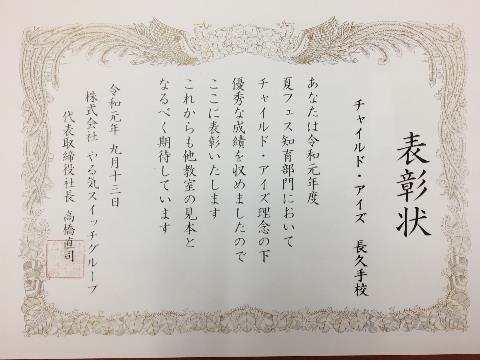 表彰状
チャイルド・アイズ 長久手校
あなたは令和元年度
夏フェス知育部門において
チャイルド・アイズ理念の下
優秀な成績を収めましたので
ここに表彰いたします
これからも他教室の見本と
なるべく期待しています
令和元年 九月十三日
株式会社 やる気スイッチグループ
代表取締役社長 高橋直司